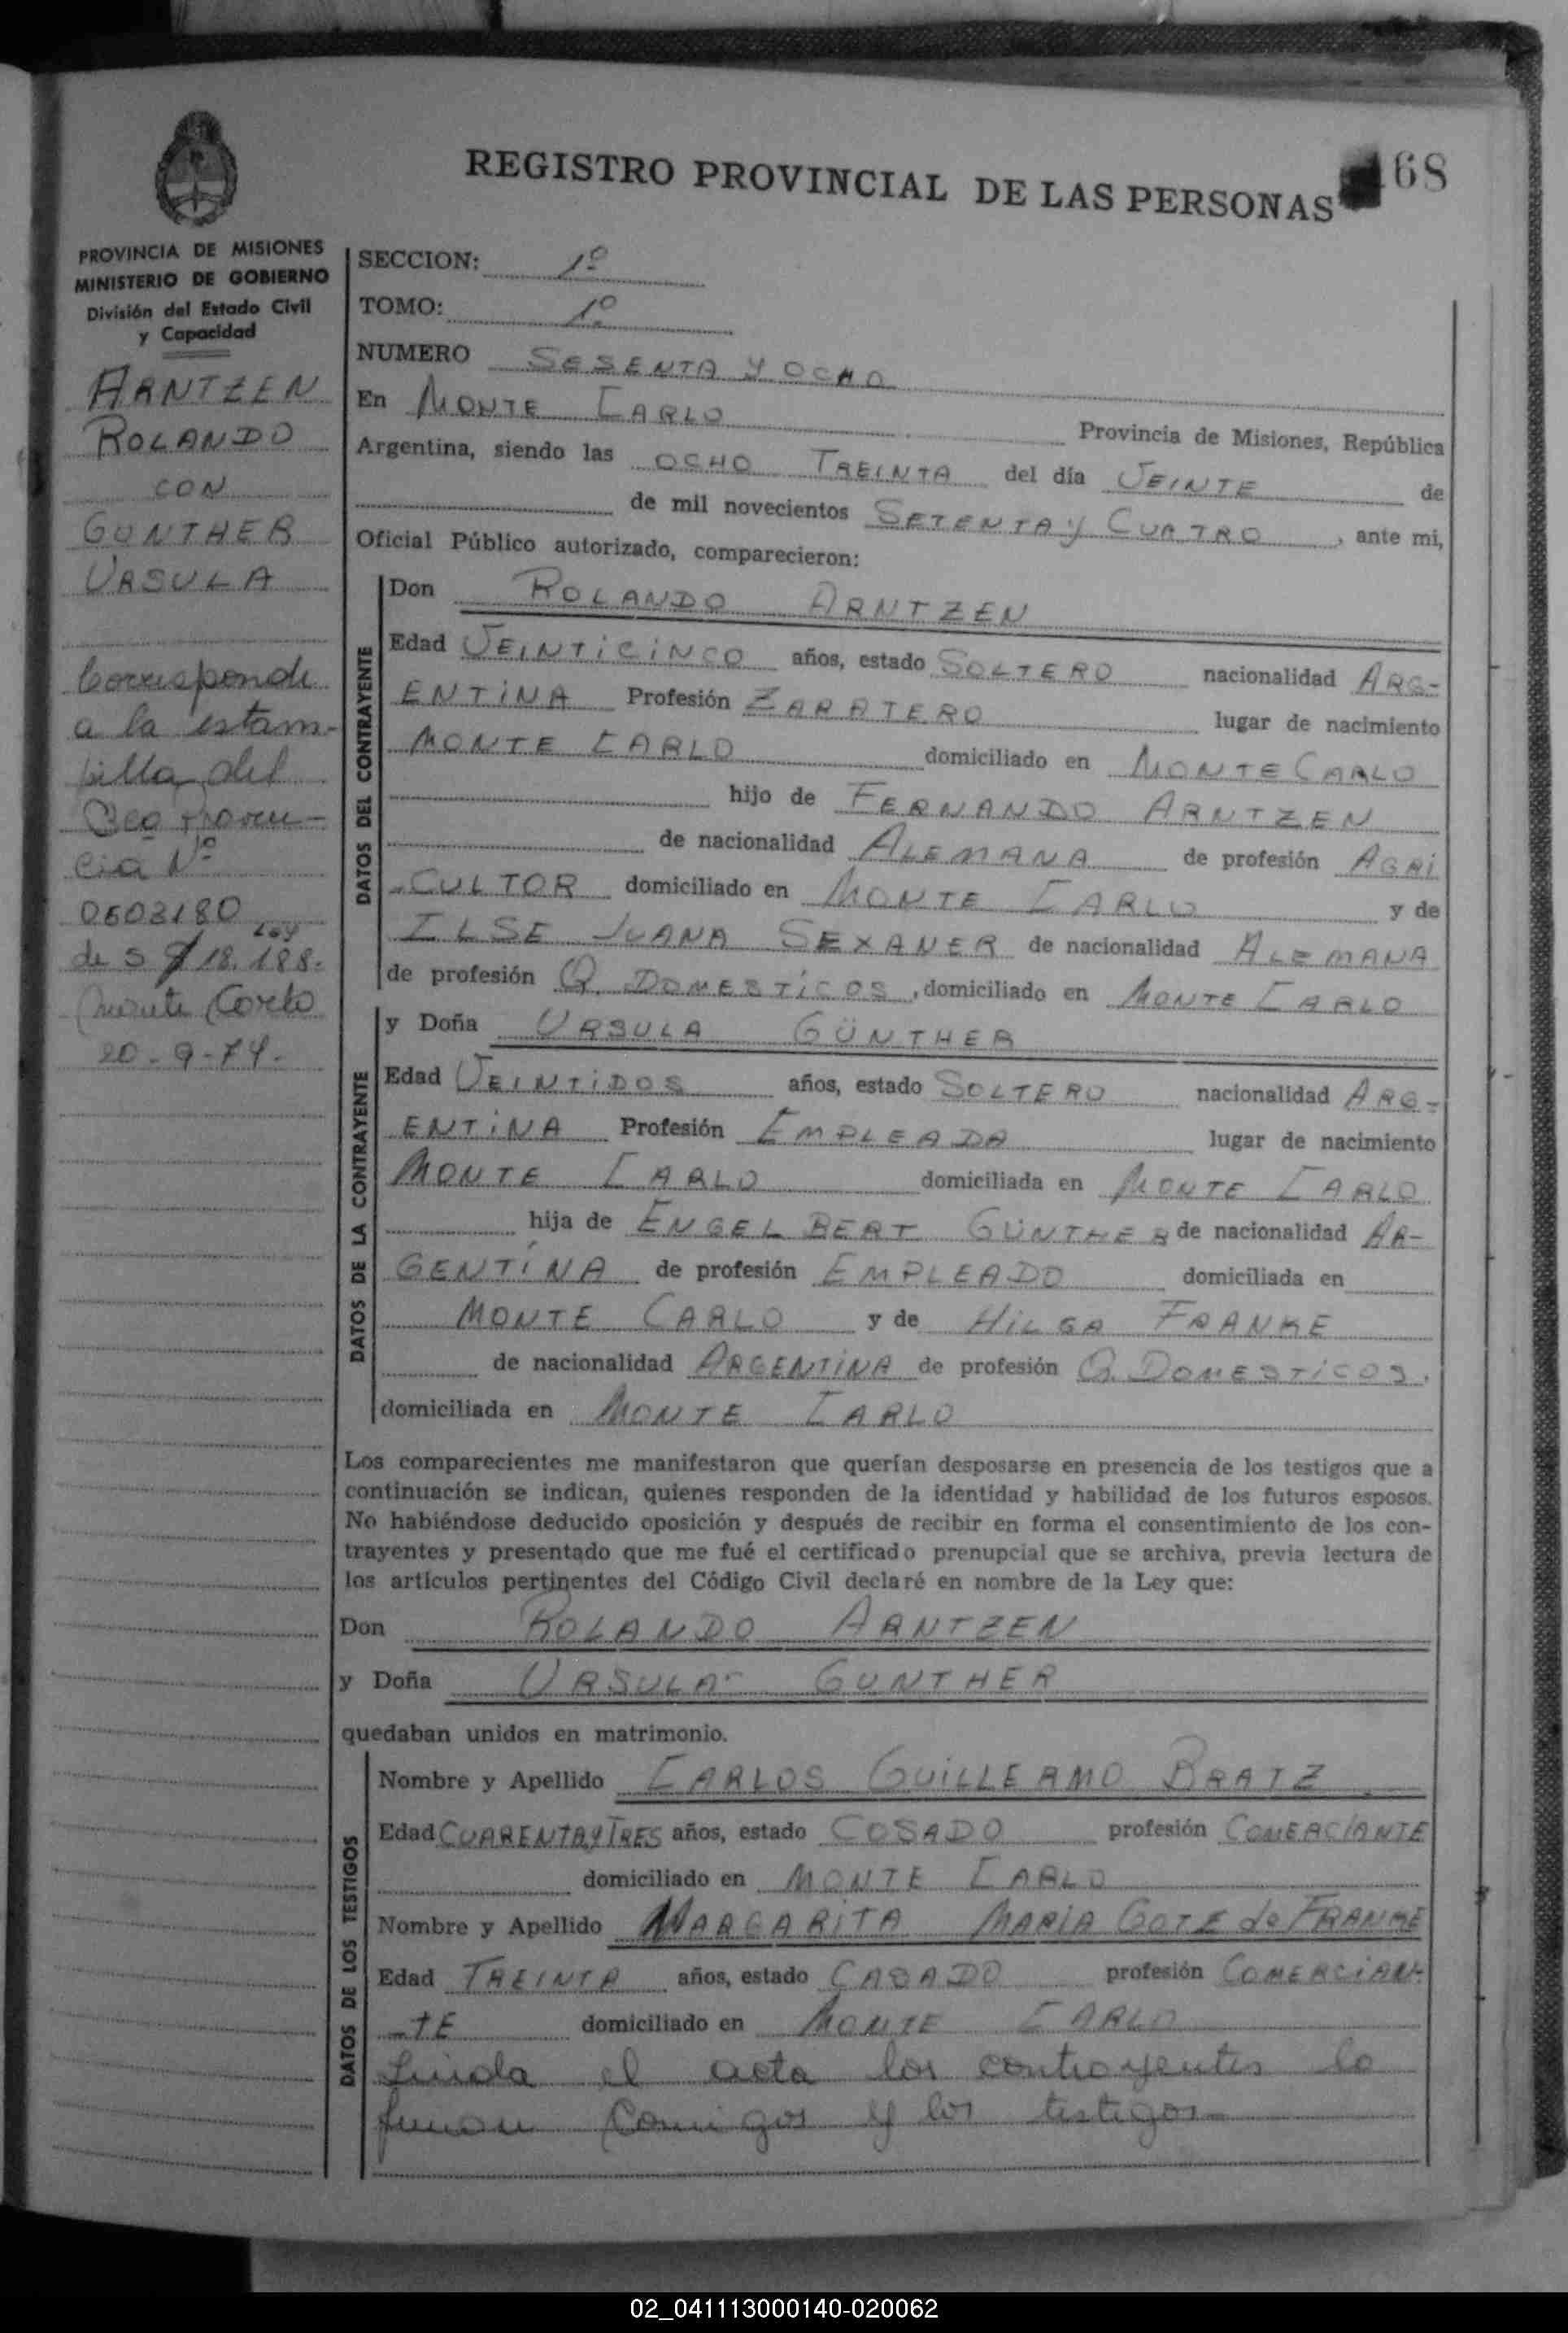 REGISTRO PROVINCIAL DE LAS PERSONAS
68
PROVINCIA DE MISIONES
MINISTERIO DE GOBIERNO
División del Estado Civil
y Capacidad
ARNTZEN
ROLANDO
CON
GUNTHER
URSULA
Corresponde
a la estam-
pilla del
provin-
cia Nº
0603180
Ley
de $ 18.188.
Monte Carlo
20-9-74.
SECCION: 1º
TOMO: 1º
NUMERO SESENTA Y OCHO
En MONTE CARLO Provincia de Misiones, República
Argentina, siendo las OCHO TREINTA del día VEINTE de
de mil novecientos SETENTA Y CUATRO, ante mi,
Oficial Público autorizado, comparecieron:
DATOS DEL CONTRAYENTE
Don ROLANDO ARNTZEN
Edad VEINTICINCO años, estado SOLTERO nacionalidad ARG-
ENTINA Profesión ZAPATERO lugar de nacimiento
MONTE CARLO domiciliado en MONTE CARLO
hijo de FERNANDO ARNTZEN
de nacionalidad ALEMANA de profesión AGRI
-CULTOR domiciliado en MONTE CARLO y de
ILSE JUANA SEXANER de nacionalidad ALEMANA
de profesión Q. DOMESTICOS, domiciliado en MONTE CARLO
DATOS DE LA CONTRAYENTE
y Doña URSULA GÜNTHER
Edad VEINTIDOS años, estado SOLTERO nacionalidad ARG-
ENTINA Profesión EMPLEADA lugar de nacimiento
MONTE CARLO domiciliada en MONTE CARLO
hija de ENGELBERT GÜNTHER de nacionalidad AR-
GENTINA de profesión EMPLEADO domiciliada en
MONTE CARLO y de HILGA FRANKE
de nacionalidad ARGENTINA de profesión Q. DOMESTICOS.
domiciliada en MONTE CARLO
Los comparecientes me manifestaron que querían desposarse en presencia de los testigos que a
continuación se indican, quienes responden de la identidad y habilidad de los futuros esposos.
No habiéndose deducido oposición y después de recibir en forma el consentimiento de los con-
trayentes y presentado que me fué el certificado prenupcial que se archiva, previa lectura de
los artículos pertinentes del Código Civil declaré en nombre de la Ley que:
Don ROLANDO ARNTZEN
y Doña URSULA GUNTHER
quedaban unidos en matrimonio.
DATOS DE LOS TESTIGOS
Nombre y Apellido CARLOS GUILLERMO BRATZ
Edad CUARENTA Y TRES años, estado COSADO profesión COMERCIANTE
domiciliado en MONTE CARLO
Nombre y Apellido MARGARITA MARIA GOTE de FRANKE
Edad TREINTA años, estado CASADO profesión COMERCIAN-
-TE domiciliado en MONTE CARLO
Leida el acta los contrayentes lo
firman Comigos y los testigos
02_041113000140-020062